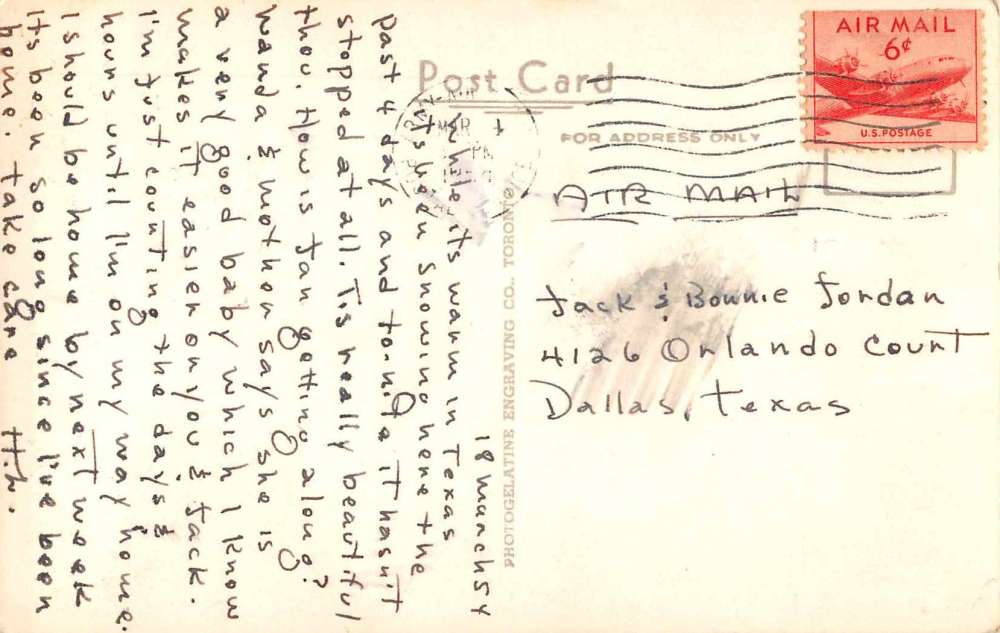 18 March 54
While its warm in Texas
its been snowing here the
past 4 days and to-nite it hasn't
stopped at all. Tis really beautiful
tho. How is Jan getting along?
Wanda & Mother says she is
a very good baby which I know
makes it easier on you & Jack.
I'm just counting the days &
hours until I'm on my way home.
I should be home by next week
Its been so long since I've been
home. take care H.L.
Post Card
FOR ADDRESS ONLY
AIR MAIL
6¢
U.S. POSTAGE
MAR
PM
AIR MAIL
Jack & Bonnie Jordan
4126 Orlando Court
Dallas, Texas
PHOTOGELATINE ENGRAVING CO., TORONTO